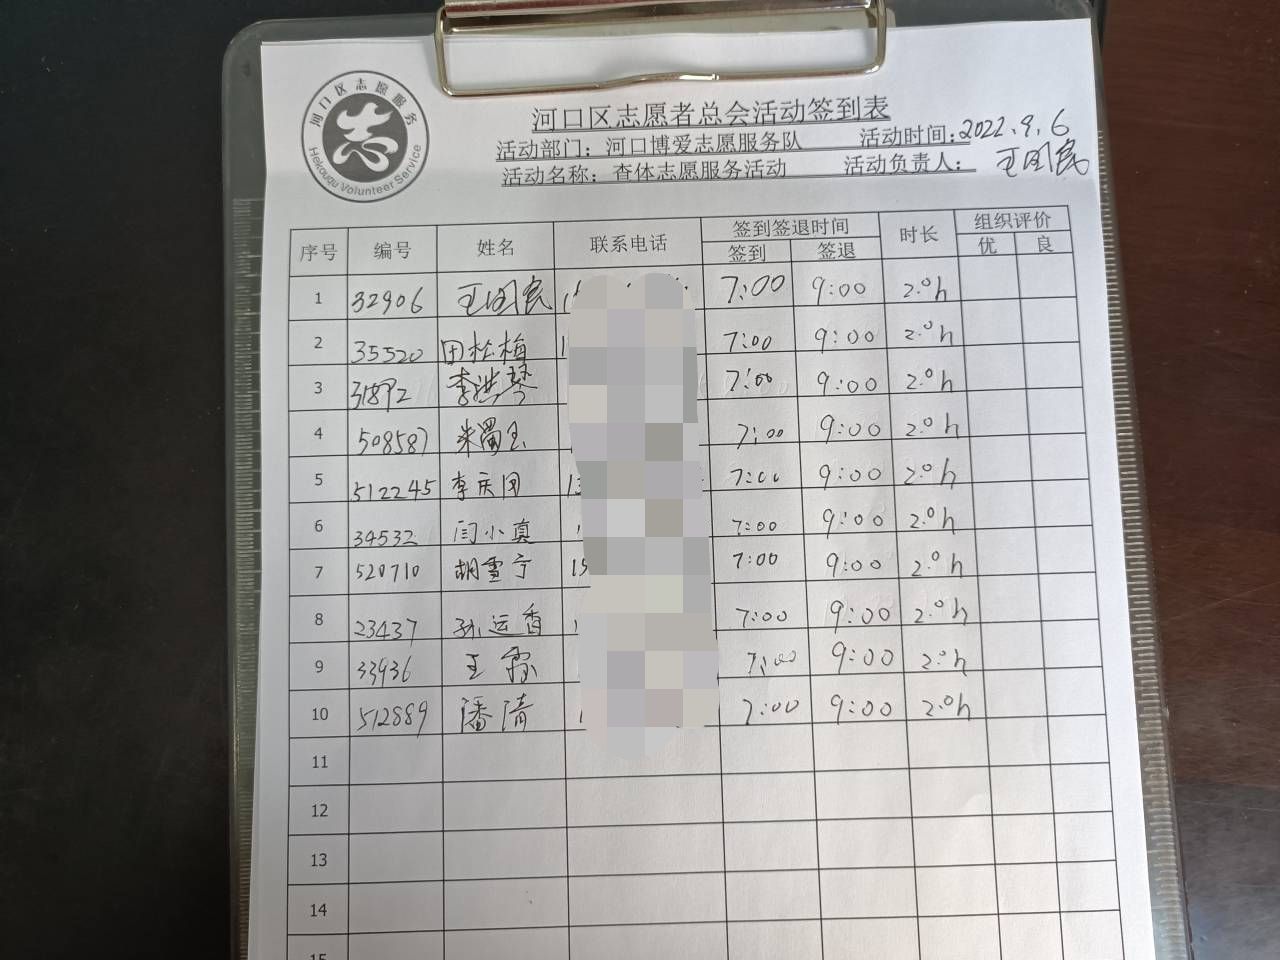 河口区志愿服务
志
Hekouqu Volunteer Service
河口区志愿者总会活动签到表
活动部门：河口博爱志愿服务队 活动时间：2022.9.6
活动名称：查体志愿服务活动 活动负责人：王国民
序号 编号 姓名 联系电话 签到签退时间 时长 组织评价
签到 签退 优 良
1 32906 王国民 1 7:00 9:00 2.0h
2 35520 田松梅 1 7:00 9:00 2.0h
3 31892 李洪琴 7:00 9:00 2.0h
4 508587 朱蜀玉 7:00 9:00 2.0h
5 512245 李庆团 13 7:00 9:00 2.0h
6 34532 闫小真 7:00 9:00 2.0h
7 520710 胡雪宁 15 7:00 9:00 2.0h
8 23437 孙运香 7:00 9:00 2.0h
9 33936 王 7:00 9:00 2.0h
10 512889 潘清 1 7:00 9:00 2.0h
11
12
13
14
15